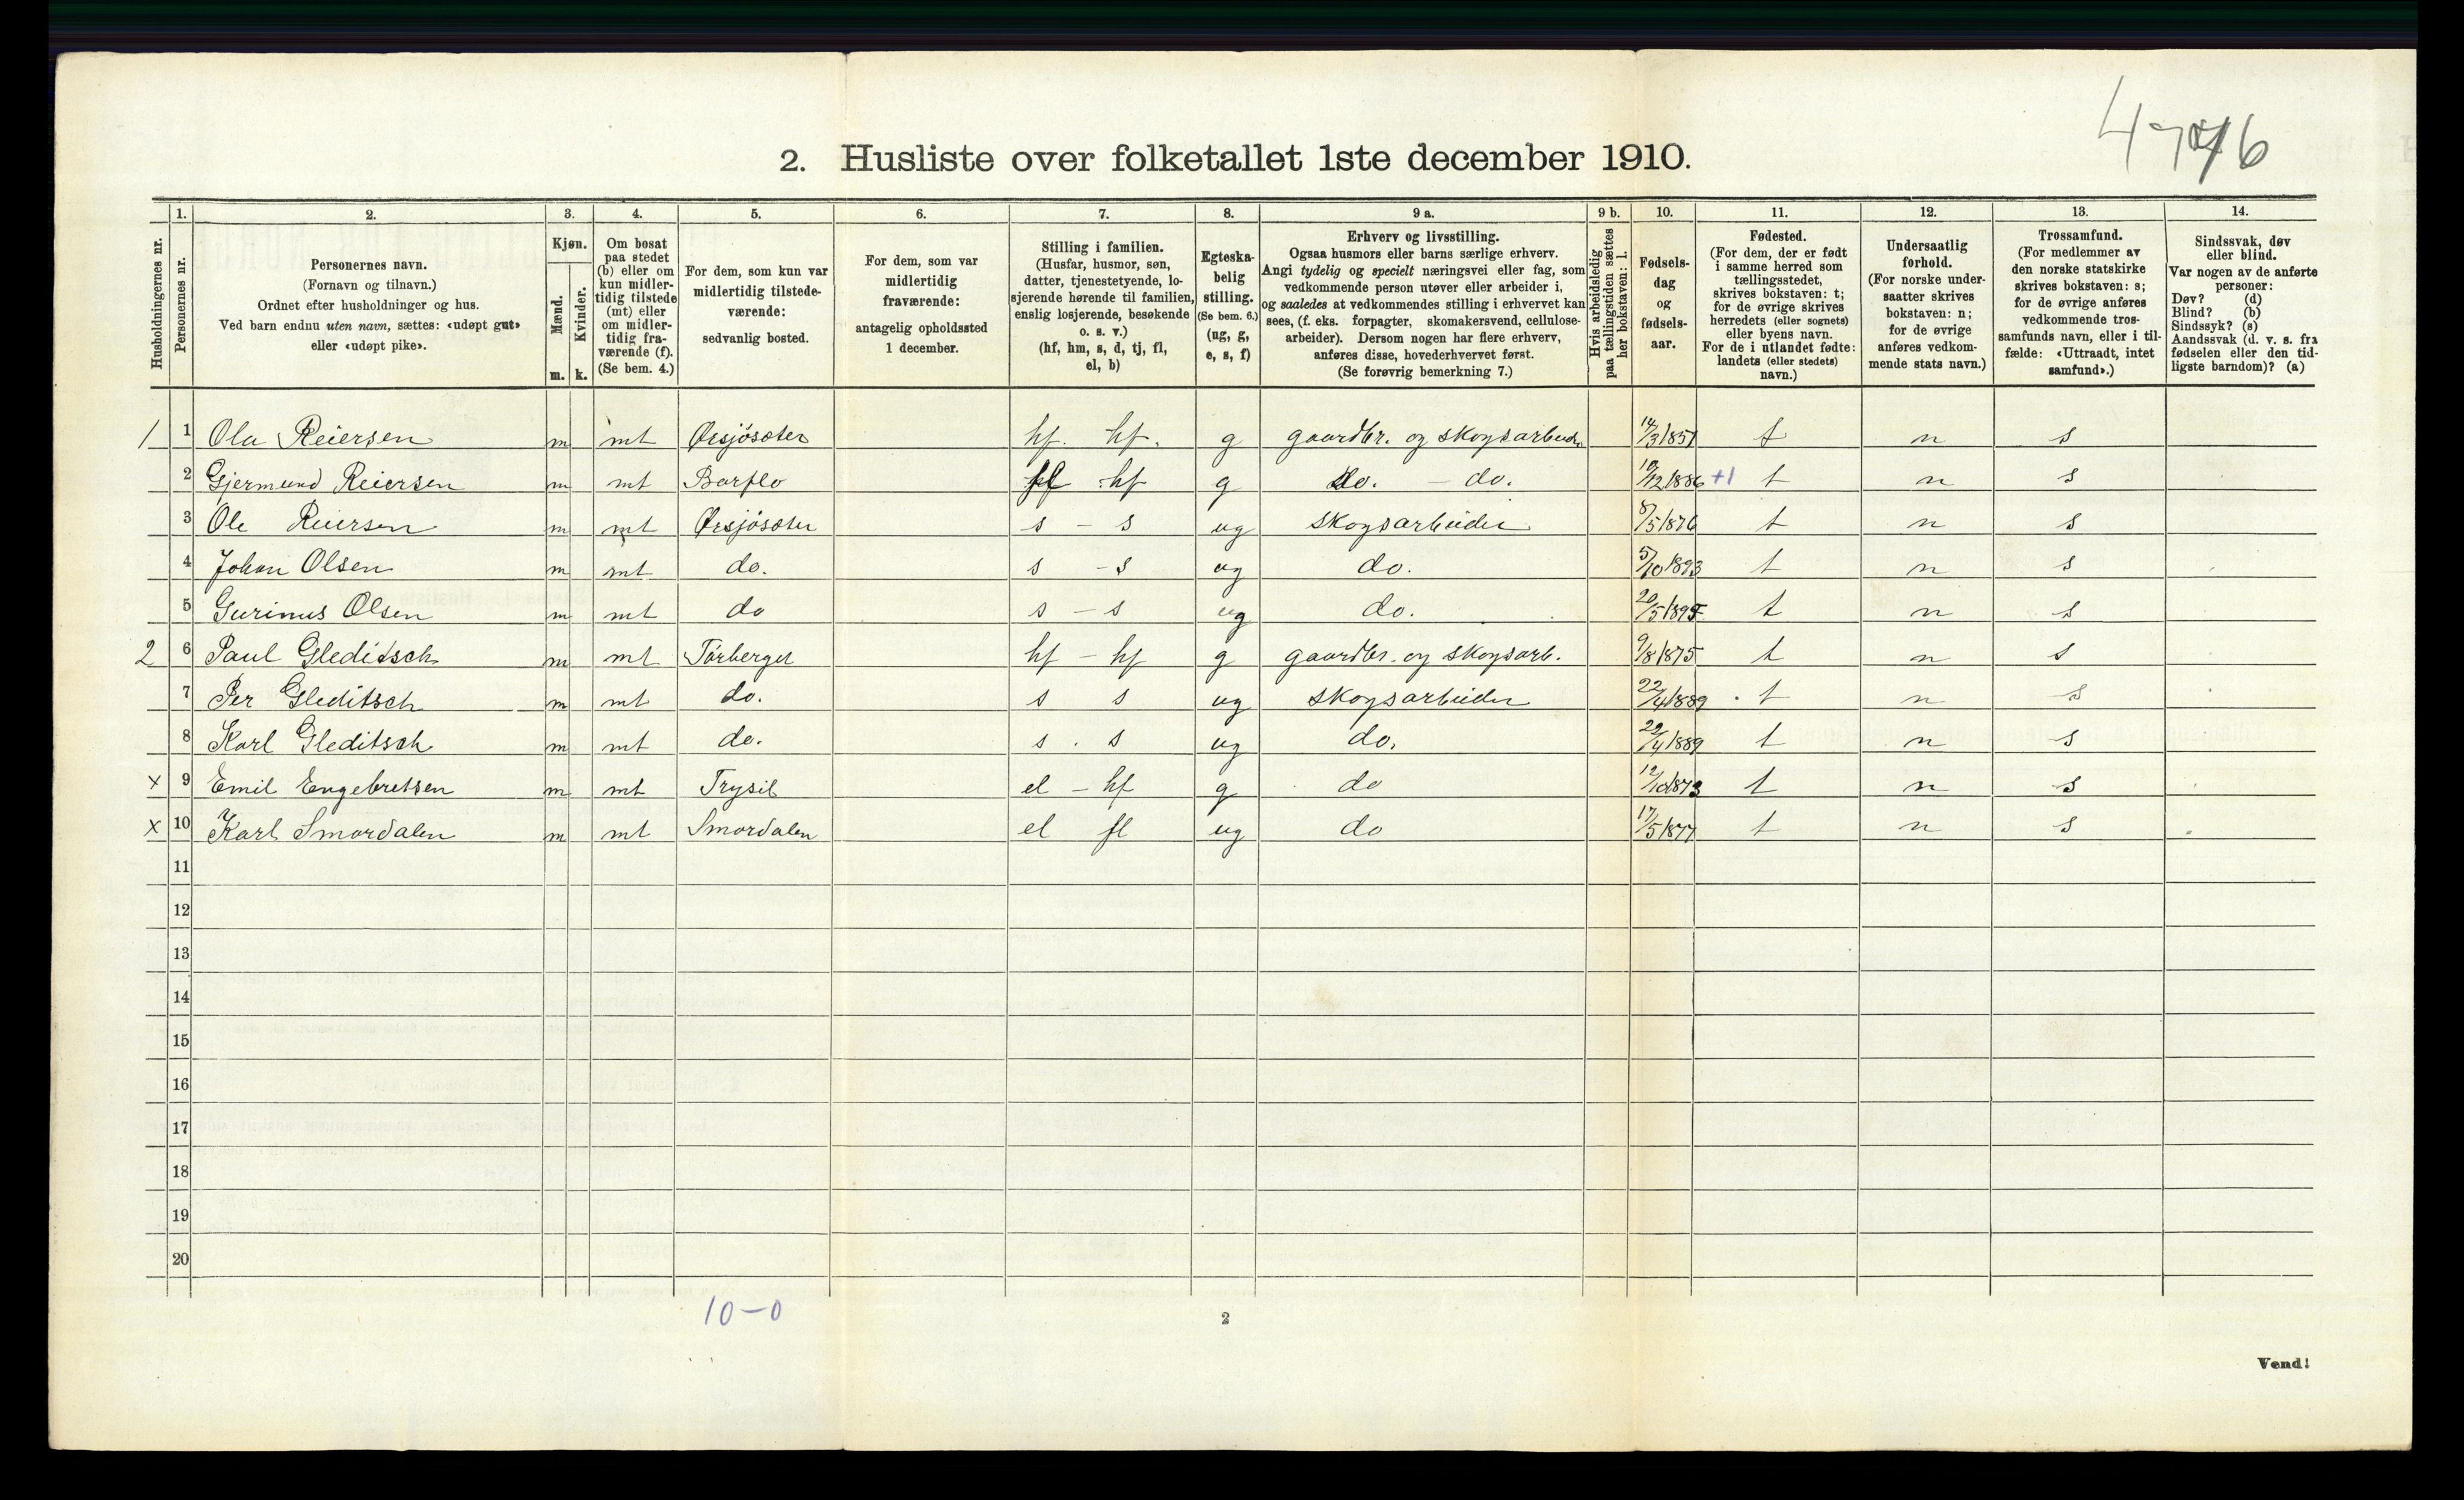 476
2. Husliste over folketallet 1ste december 1910.
Husholdningernes nr.
1. 2. 3. 4. 5. 6. 7. 8. 9 a. 9 b. 10. 11. 12. 13. 14.
Personernes nr.
Personernes navn.
(Fornavn og tilnavn.)
Ordnet efter husholdninger og hus.
Ved barn endnu uten navn, sættes: «udøpt gut»
eller «udøpt pike».
Kjøn.
Mænd.
Kvinder.
m. k.
Om bosat
paa stedet
(b) eller om
kun midler-
tidig tilstede
(mt) eller
om midler-
tidig fra-
værende (f).
(Se bem. 4.)
For dem, som kun var
midlertidig tilstede-
værende:
sedvanlig bosted.
For dem, som var
midlertidig
fraværende:
antagelig opholdssted
1 december.
Stilling i familien.
(Husfar, husmor, søn,
datter, tjenestetyende, lo-
sjerende hørende til familien,
enslig losjerende, besøkende
o. s. v.)
(hf, hm, s, d, tj, fl,
el, b)
Egteska-
belig
stilling.
(Se bem. 6.)
(ug, g,
e, s, f)
Erhverv og livsstilling.
Ogsaa husmors eller barns særlige erhverv.
Angi tydelig og specielt næringsvei eller fag, som
vedkommende person utøver eller arbeider i,
og saaledes at vedkommendes stilling i erhvervet kan
sees, (f. eks. forpagter, skomakersvend, cellulose-
arbeider). Dersom nogen har flere erhverv,
anføres disse, hovederhvervet først.
(Se forøvrig bemerkning 7.)
Hvis arbeidsledig
paa tællingstiden sættes
her bokstaven: l.
Fødsels-
dag
og
fødsels-
aar.
Fødested.
(For dem, der er født
i samme herred som
tællingsstedet,
skrives bokstaven: t;
for de øvrige skrives
herredets (eller sognets)
eller byens navn.
For de i utlandet fødte:
landets (eller stedets)
navn.)
Undersaatlig
forhold.
(For norske under-
saatter skrives
bokstaven: n;
for de øvrige
anføres vedkom-
mende stats navn.)
Trossamfund.
(For medlemmer av
den norske statskirke
skrives bokstaven: s;
for de øvrige anføres
vedkommende tros-
samfunds navn, eller i til-
fælde: «Uttraadt, intet
samfund».)
Sindssvak, døv
eller blind.
Var nogen av de anførte
personer:
Døv? (d)
Blind? (b)
Sindssyk? (s)
Aandssvak (d. v. s. fra
fødselen eller den tid-
ligste barndom)? (a)
1 1 Ola Reiersen m mt Ørsjösæter hf. hf. g gaardbr. og skogsarbeider 14/3 1851 t n s
2 Gjermund Reiersen m mt Borflo hf g do. - do. 10/12 1886 +1 t n s
3 Ole Reiersen m mt Ørsjösæter s - s ug skogsarbeider 8/5 1876 t n s
4 Johan Olsen m mt do. s - s ug do. 5/10 1893 t n s
5 Gurinus Olsen m mt do s - s ug do. 20/5 1895 t n s
2 6 Paul Gleditsch m mt Törberget hf - hf g gaardbr. og skogsarb. 9/8 1875 t n s
7 Per Gleditsch m mt do. s s ug skogsarbeider 22/4 1889 t n s
8 Karl Gleditsch m mt do. s . s ug do. 22/4 1889 t n s
x 9 Emil Engebretsen m mt Trysil el - hf g do 12/10 1873 t n s
x 10 Karl Smordalen m mt Smordalen el fl ug do 17/5 1877 t n s
11
12
13
14
15
16
17
18
19
20
10-0
2
Vend!